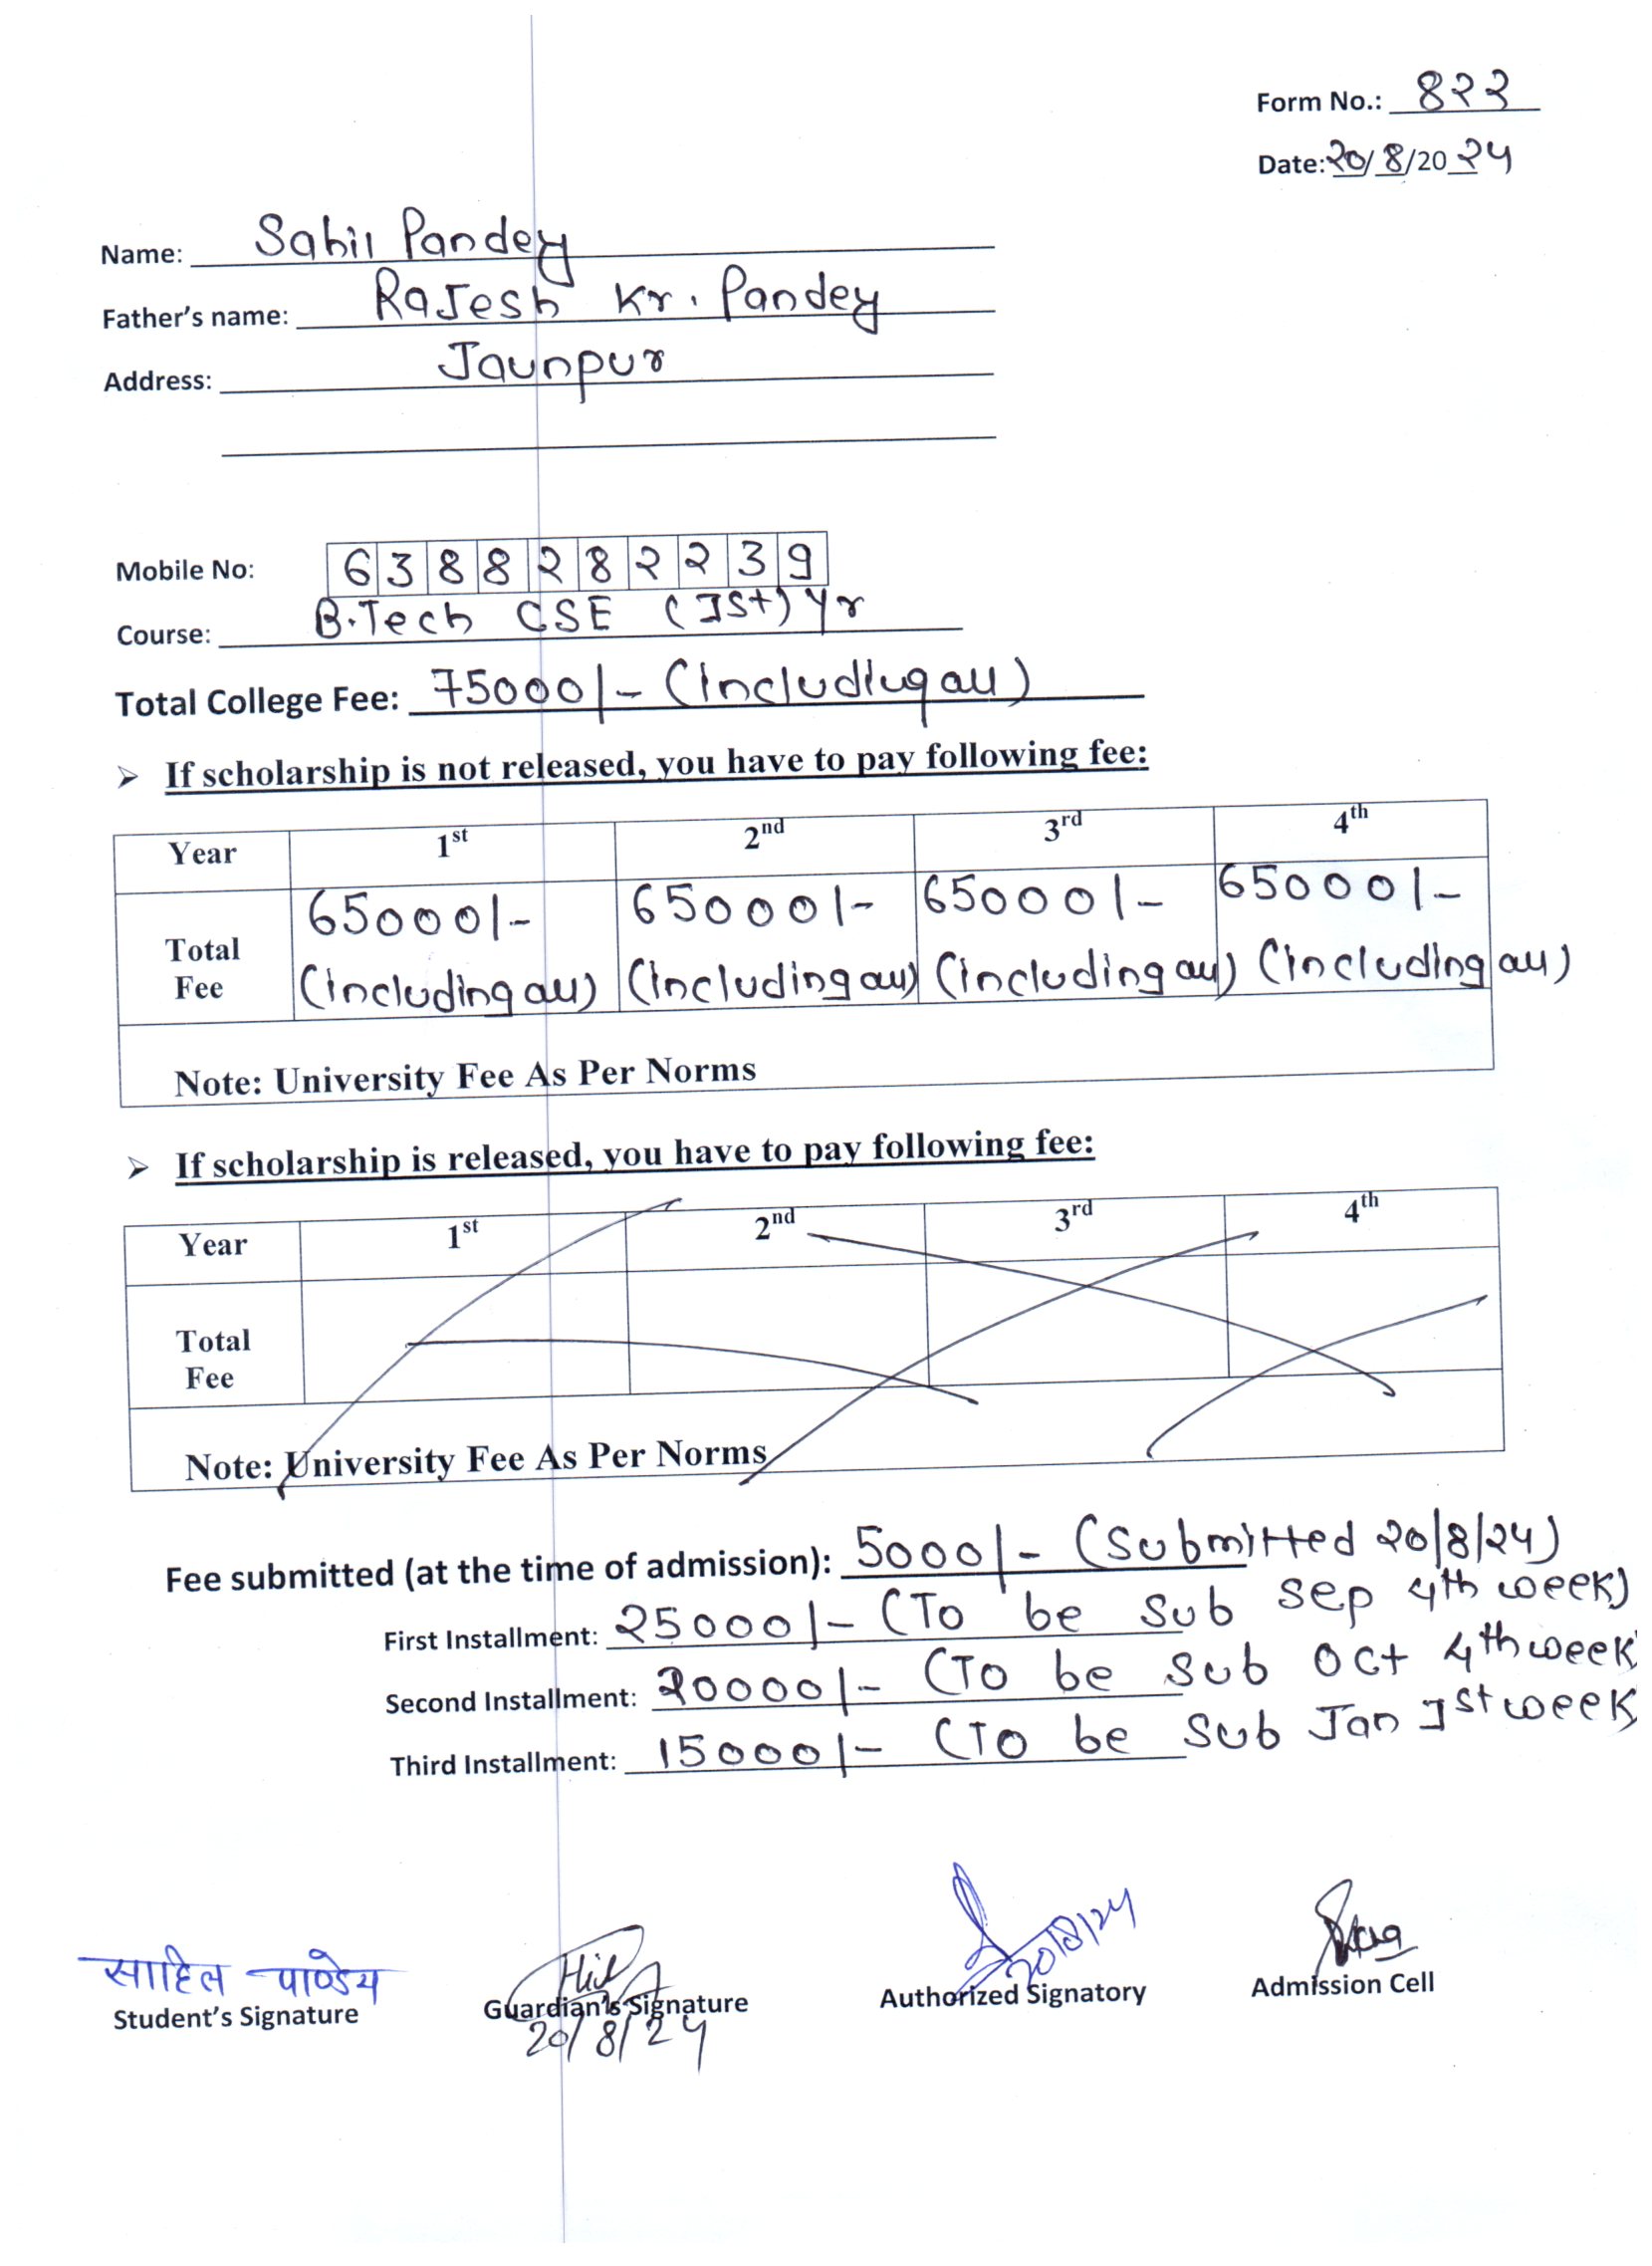 Form No.: 822
Date: 20/8/2024
Name: Sahil Pandey
Father's name: Rajesh Kr. Pandey
Address: Jaunpur
Mobile No: 6388282239
Course: B.Tech CSE (Ist) Yr
Total College Fee: 75000/- (Including all)
➢ If scholarship is not released, you have to pay following fee:
Year 1st 2nd 3rd 4th
Total Fee 65000/- (including all) 65000/- (Including all) 65000/- (including all) 65000/- (including all)
Note: University Fee As Per Norms
➢ If scholarship is released, you have to pay following fee:
Year 1st 2nd 3rd 4th
Total Fee
Note: University Fee As Per Norms
Fee submitted (at the time of admission): 5000/- (Submitted 20/8/24)
First Installment: 25000/- (To be sub Sep 4th week)
Second Installment: 20000/- (To be sub Oct 4th week
Third Installment: 15000/- (To be sub Jan Ist week
साहिल पाण्डेय 20/8/24
Student's Signature Guardian's Signature Authorized Signatory Admission Cell
20/8/24